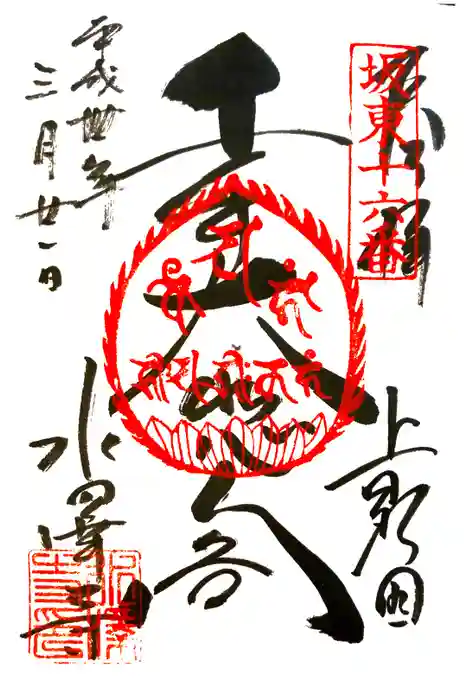 坂東十六番
上野国
千手大悲閣
平成丗年
三月廿一日
水澤寺